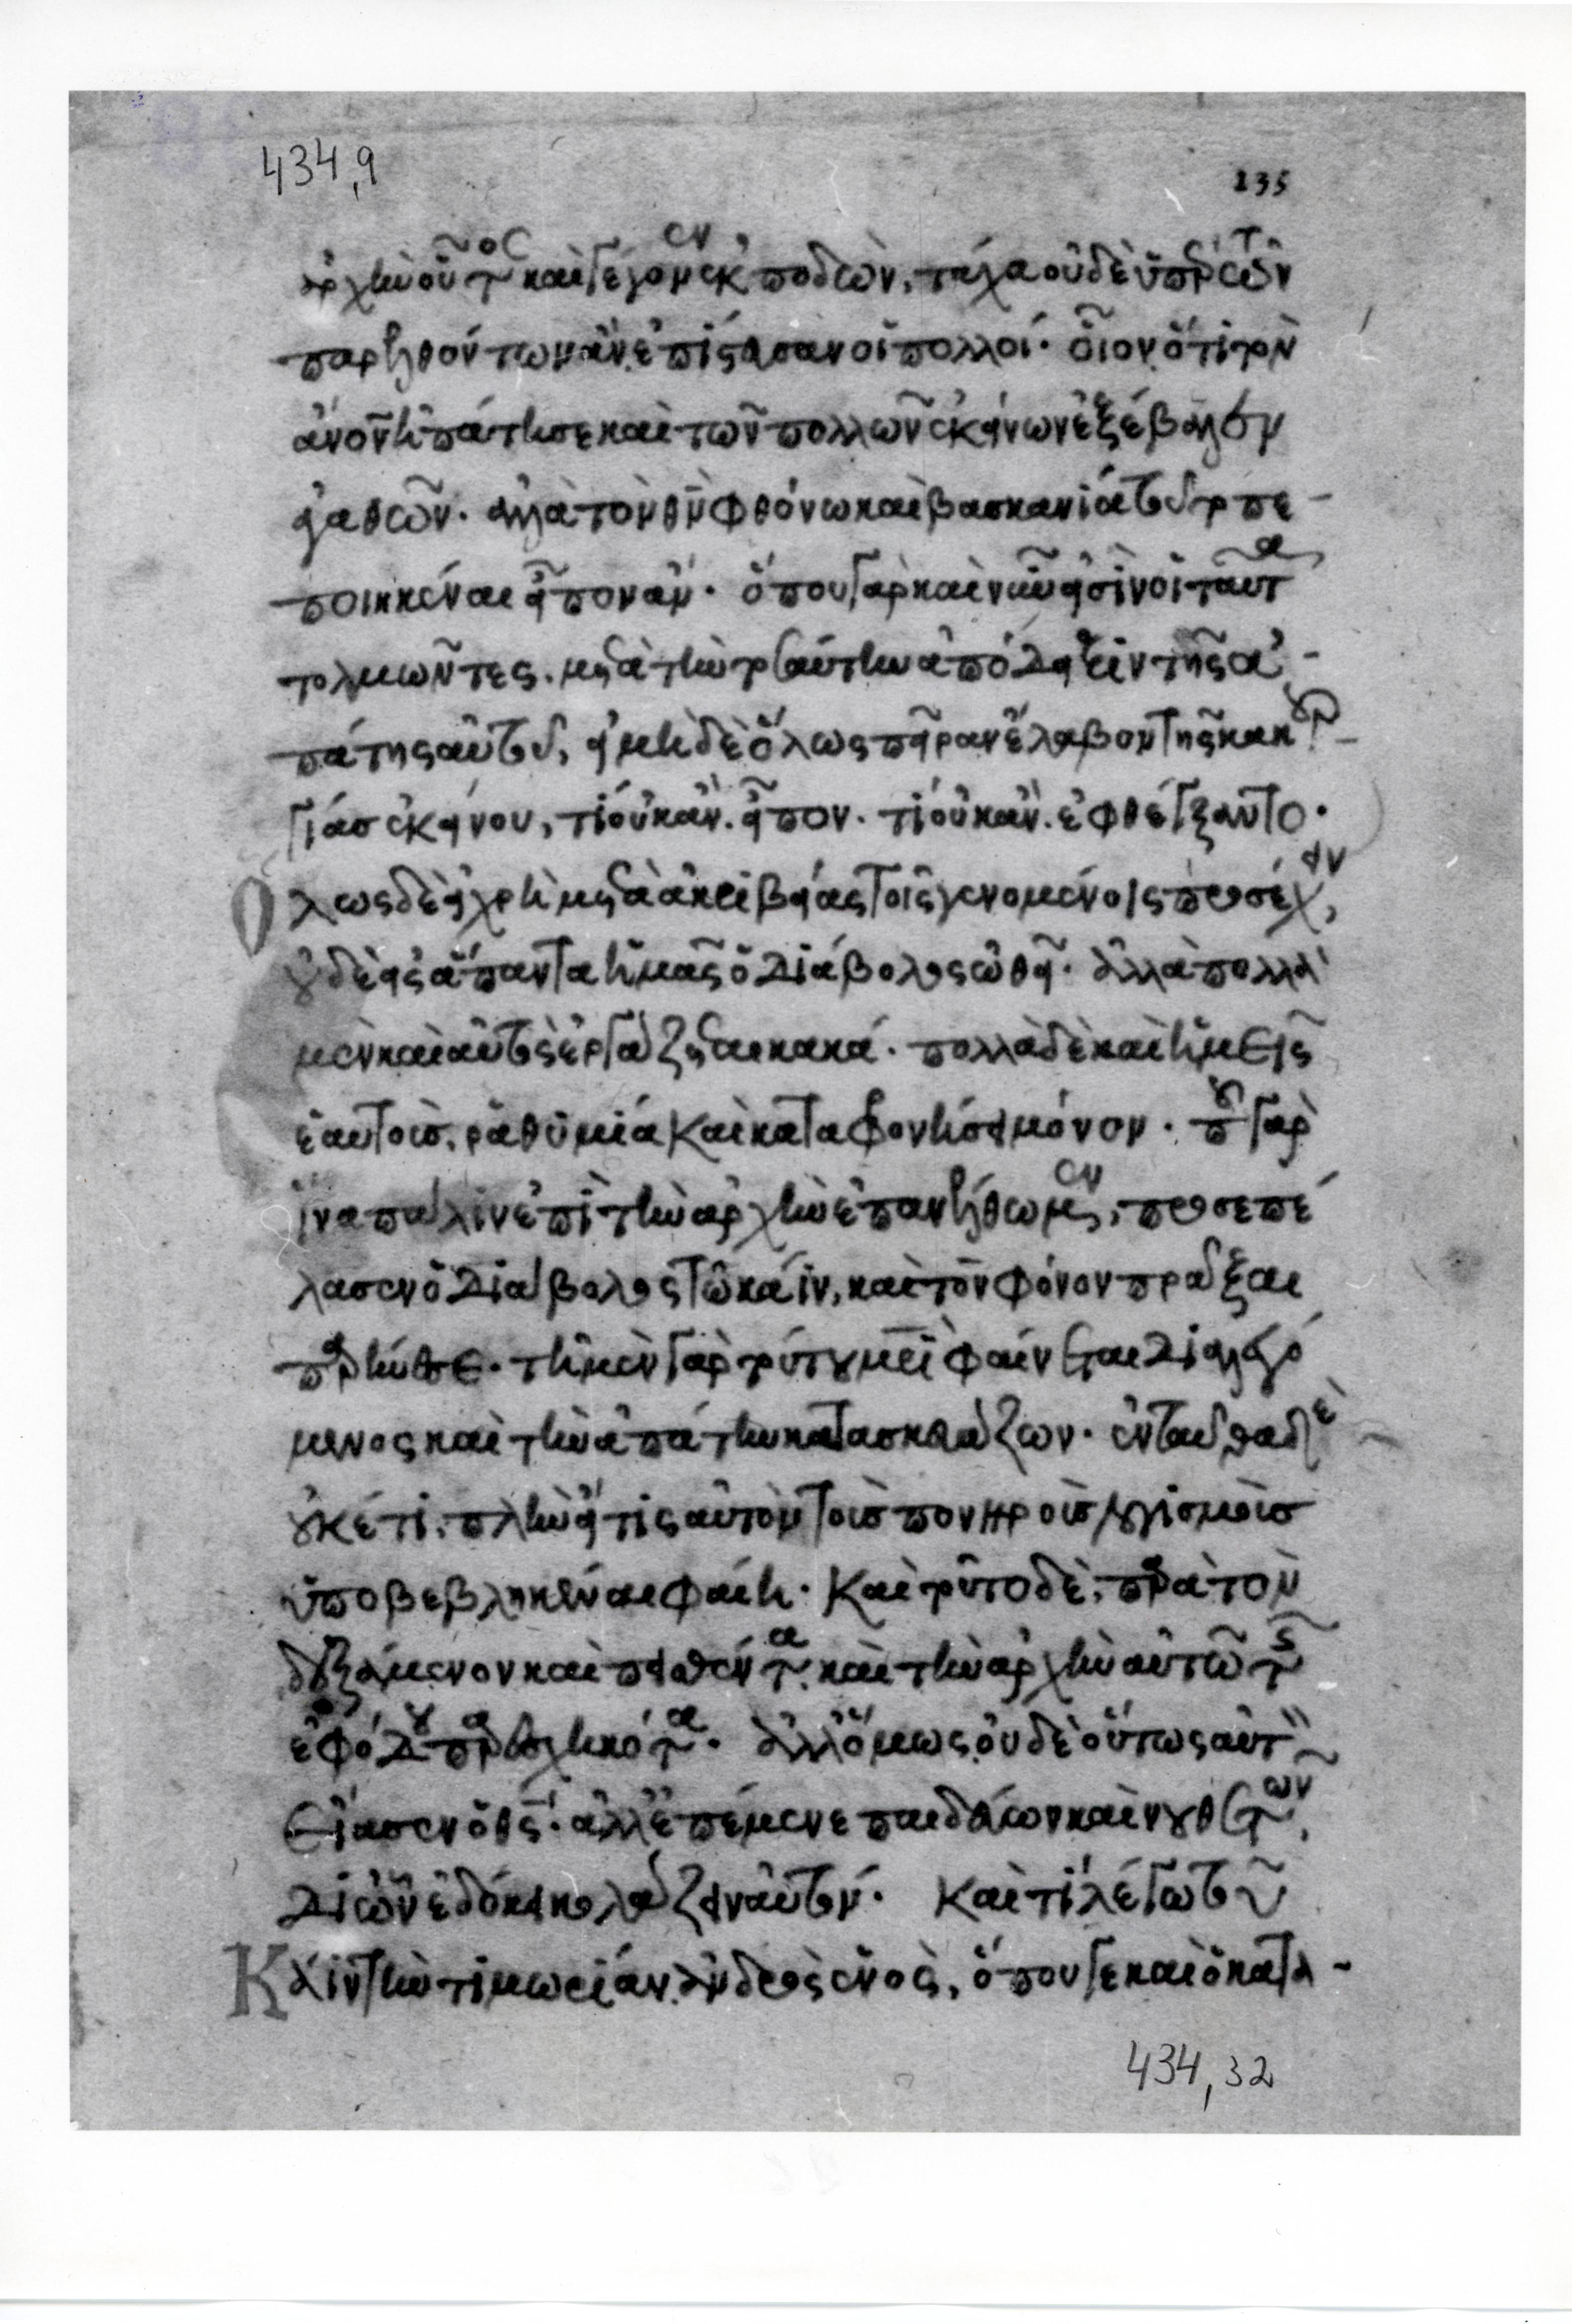 434,9
135
ἀρχὴν οὗτος καὶ γέγονεν ἐκποδὼν, τάχα οὐδὲ ὑπὲρ τῶν
παρελθόντων ἂν ἐπίστευσαν οἱ πολλοί· οἷον ὅτι τὸν
ἄνον ἠπάτησε καὶ τῶν πολλῶν ἐκείνων ἐξέβαλεν
ἀγαθῶν· ἀλλὰ τὸν θν φθόνω καὶ βασκανία τοῦτο πε-
ποιηκέναι εἶπον ἄν· ὅπου γὰρ καὶ νῦν εἰσί τινοι ταῦτα
τολμῶντες. μετὰ τὴν τοσαύτην ἀπόδειξιν τῆς ἀ-
πάτης αὐτοῦ, εἰ μὴ δὲ ὅλως πεῖραν ἔλαβον τῆς κακουρ-
γίας ἐκείνου, τί οὐκ ἂν εἶπον. τί οὐκ ἂν ἐφθέγξαντο·
Ὅλως δὲ εἰ χρὴ μετὰ ἀκριβείας τοῖς γενομένοις προσέχειν,
οὐδὲ εἰς ἅπαντα ἡμᾶς ὁ διάβολος ὠθεῖ· ἀλλὰ πολλὰ
μὲν καὶ αὐτὸς ἐργάζεται κακά· πολλὰ δὲ καὶ ἡμεῖς
ἑαυτοῖς, ῥαθυμία καὶ καταφρονήσει μόνον· ποῦ γὰρ
ἵνα πάλιν ἐπὶ τὴν ἀρχὴν ἐπανέλθωμεν, προσεπέ
λασεν ὁ διάβολος τῶ κάϊν, καὶ τὸν φόνον πρᾶξαι
παρήνεσε· τῆ μὲν γὰρ τούτου μρὶ φαίνεται διαλεγό
μενος καὶ τὴν ἀπάτην κατασκευάζων· ἐνταῦθα δὲ
οὐκέτι. πλὴν εἴ τις αὐτὸν τοῖς πονηροῖς λογισμοῖς
ὑποβεβληκέναι φαίη· καὶ τοῦτο δὲ, παρὰ τὸν
δεξάμενον καὶ πεισθέντα. καὶ τὴν ἀρχὴν αὐτῶ τῆς
ἐφόδου παρεσχηκότα· ἀλλ' ὅμως οὐδὲ οὕτως αὐτὸν
εἴασεν ὁ θς· ἀλλ' ἐπέμενε παιδεύων καὶ νουθετῶν,
δι' ὧν ἐδόκει κολάζειν αὐτόν· καὶ τί λέγω τοῦ
Κάϊν τὴν τιμωρίαν ἀνδρὸς ἑνὸς, ὅπου γε καὶ ὁ κατα-
434,32